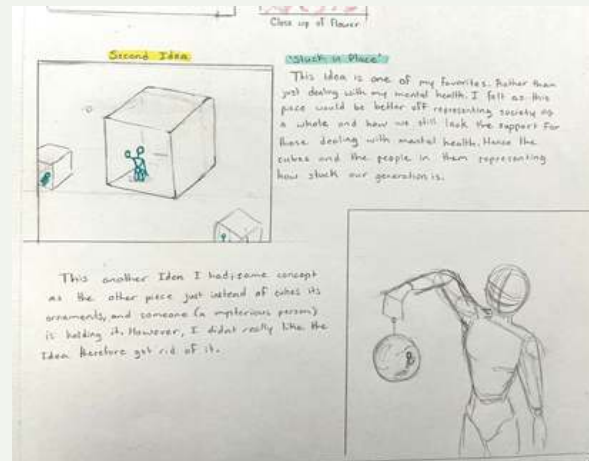 Close up of Flower
Second Idea
'Stuck in Place'
This idea is one of my favorites. Rather than
just dealing with my mental health. I felt as this
piece would be better off representing society as
a whole and how we still lack the support for
those dealing with mental health. Hence the
cubes and the people in them representing
how stuck our generation is.
This another Idea I had; same concept
as the other piece just instead of cubes its
ornaments, and someone (a mysterious person)
is holding it. However, I didnt really like the
Idea therefore got rid of it.